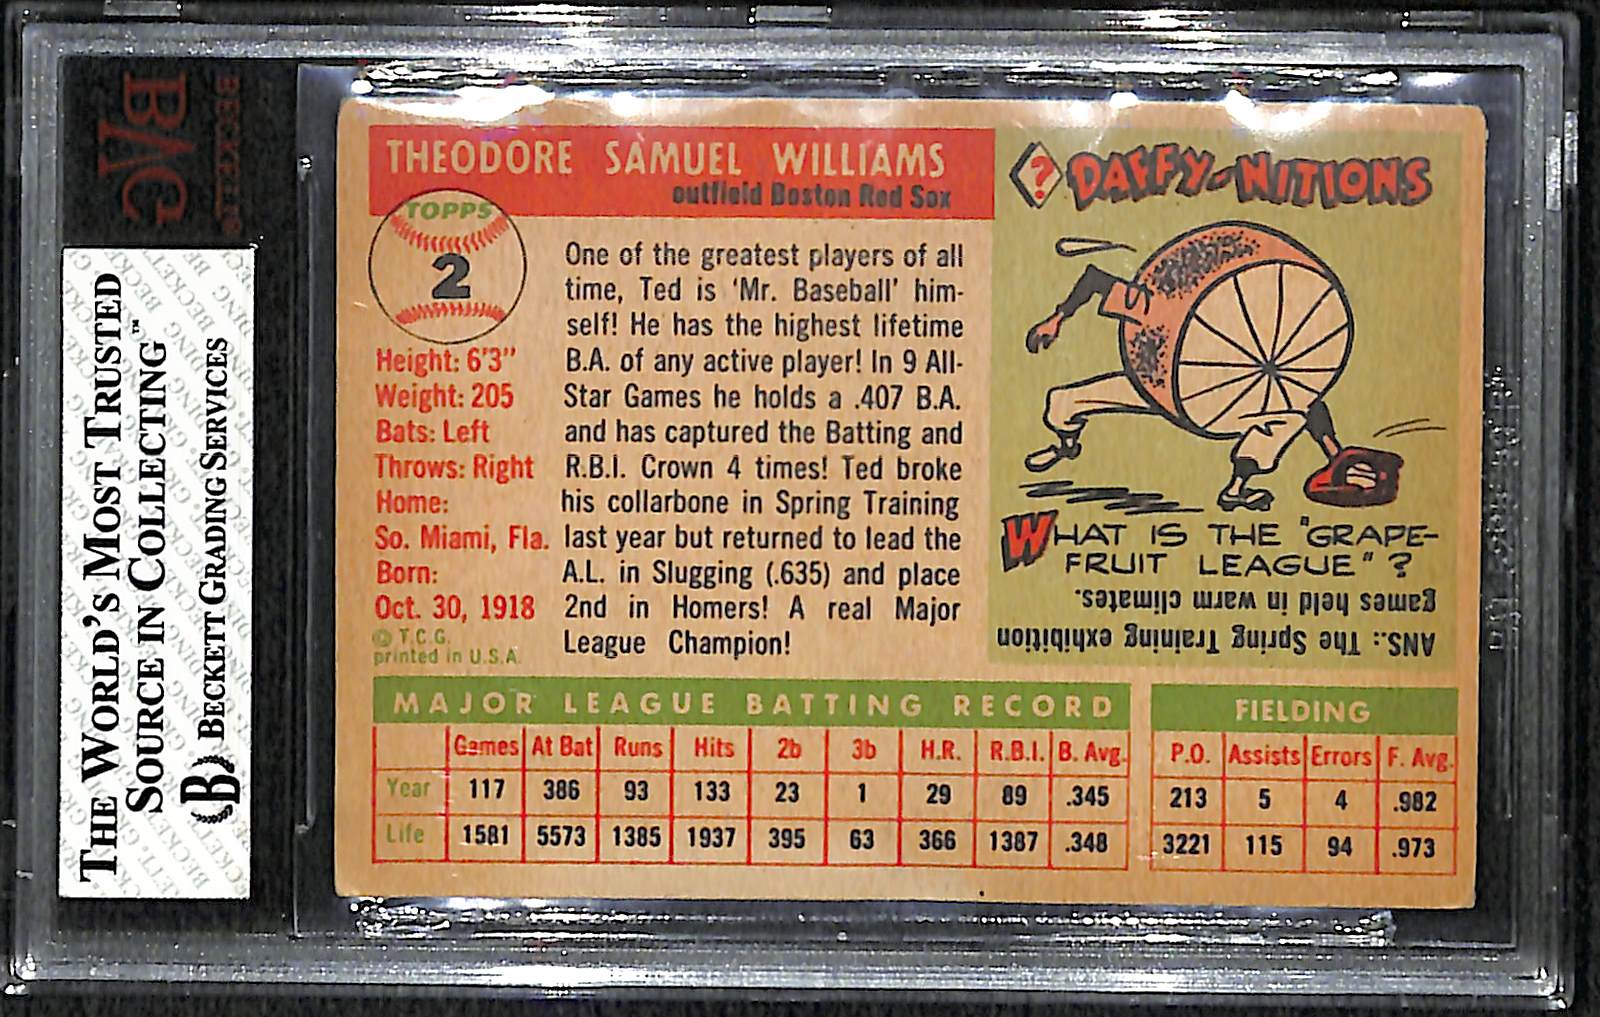 BECKETT
BVG
THE WORLD'S MOST TRUSTED
SOURCE IN COLLECTING™
BECKETT GRADING SERVICES
B
THEODORE SAMUEL WILLIAMS
outfield Boston Red Sox
TOPPS
2
Height: 6'3"
Weight: 205
Bats: Left
Throws: Right
Home:
So. Miami, Fla.
Born:
Oct. 30, 1918
© T.C.G.
printed in U.S.A.
One of the greatest players of all
time, Ted is 'Mr. Baseball' him-
self! He has the highest lifetime
B.A. of any active player! In 9 All-
Star Games he holds a .407 B.A.
and has captured the Batting and
R.B.I. Crown 4 times! Ted broke
his collarbone in Spring Training
last year but returned to lead the
A.L. in Slugging (.635) and place
2nd in Homers! A real Major
League Champion!
? DAFFY-NITIONS
WHAT IS THE "GRAPE-
FRUIT LEAGUE"?
ANS.: The Spring Training exhibition
games held in warm climates.
MAJOR LEAGUE BATTING RECORD
Games At Bat Runs Hits 2b 3b H.R. R.B.I. B. Avg.
Year 117 386 93 133 23 1 29 89 .345
Life 1581 5573 1385 1937 395 63 366 1387 .348
FIELDING
P.O. Assists Errors F. Avg.
213 5 4 .982
3221 115 94 .973